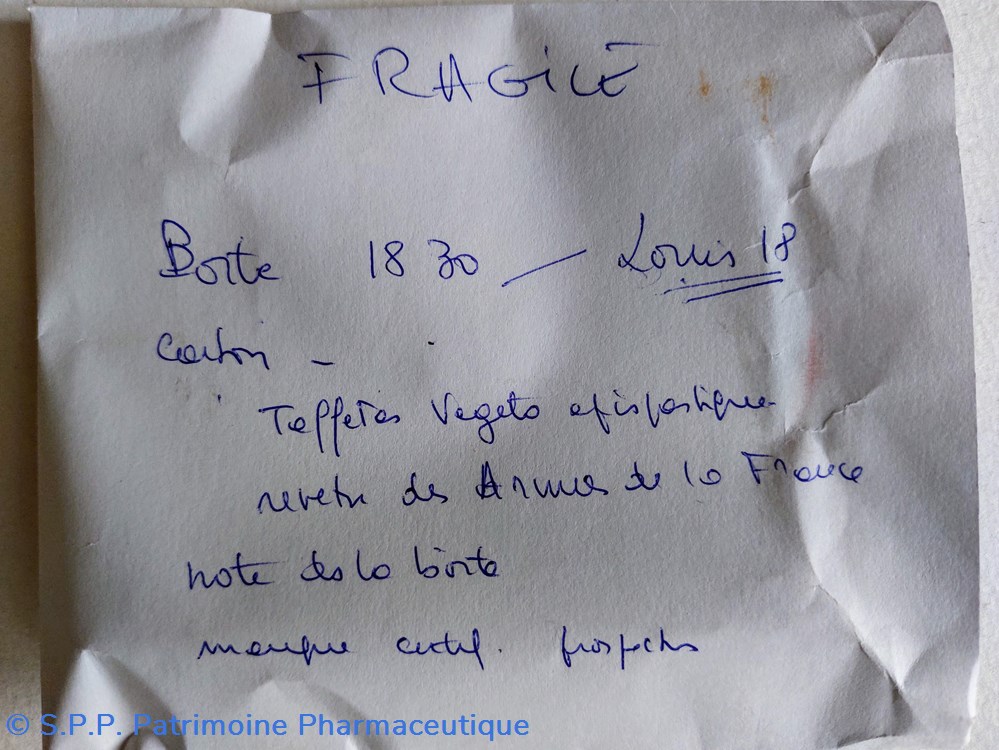 FRAGILE
Boite 1830 — Louis 18
Carton -
Taffetas Vegeto epispastique
revetu des Armes de la France
note de la boite
manque certif. prospectus
© S.P.P. Patrimoine Pharmaceutique